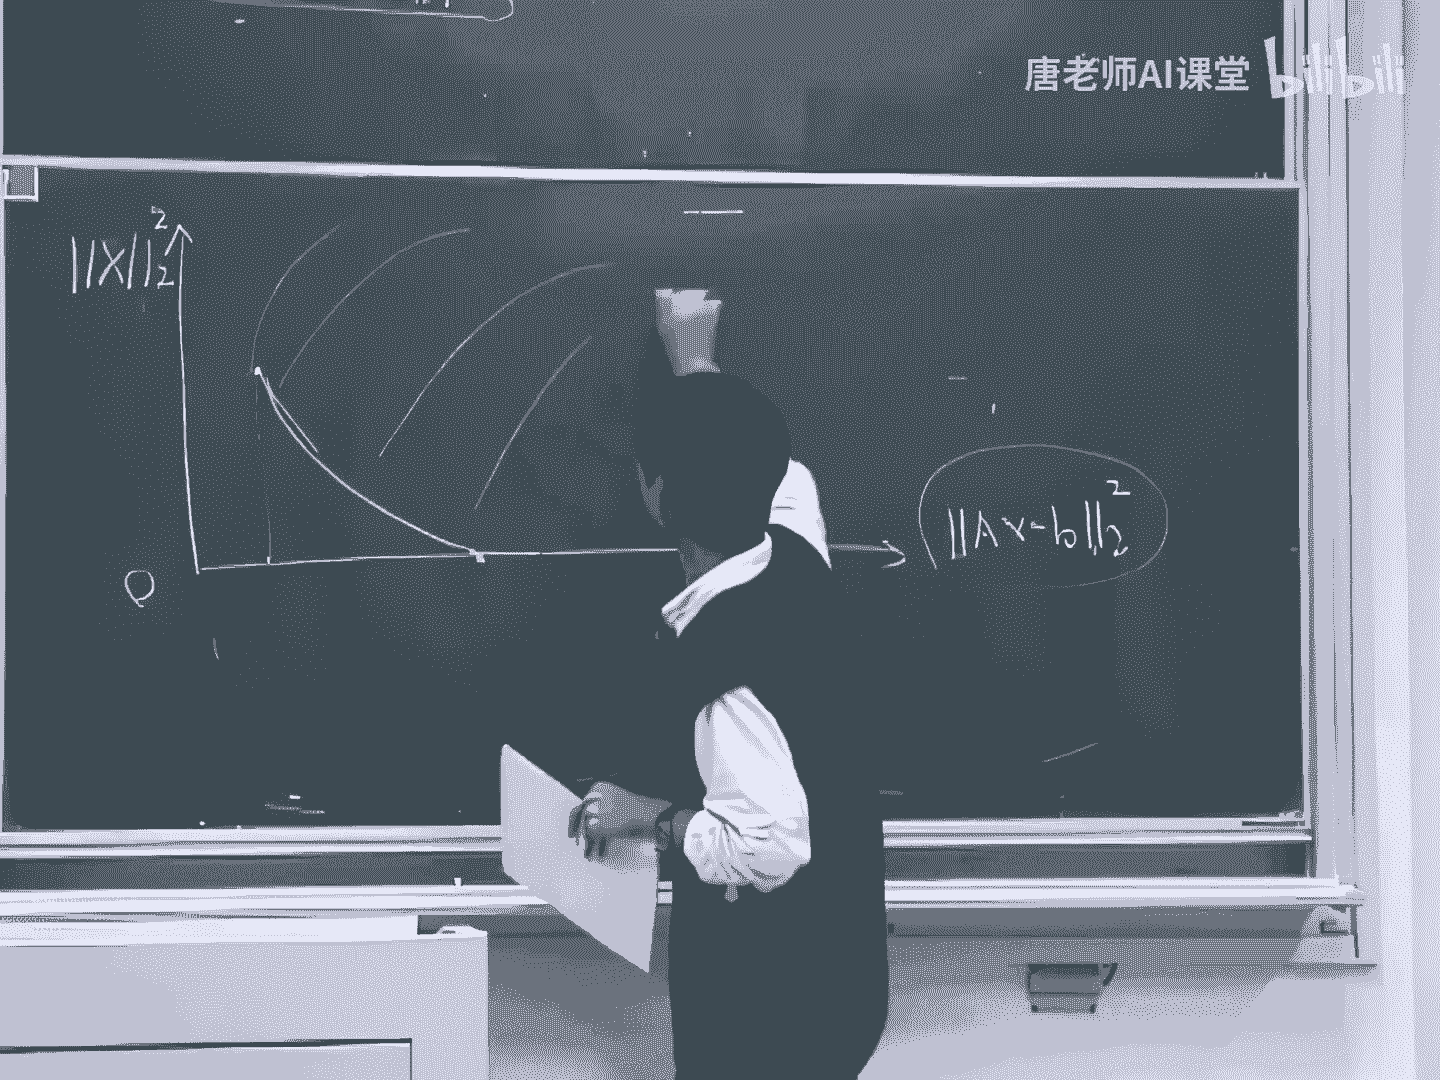 唐老师AI课堂 bilibili
||X||₂²
||Ax-b||₂²
O